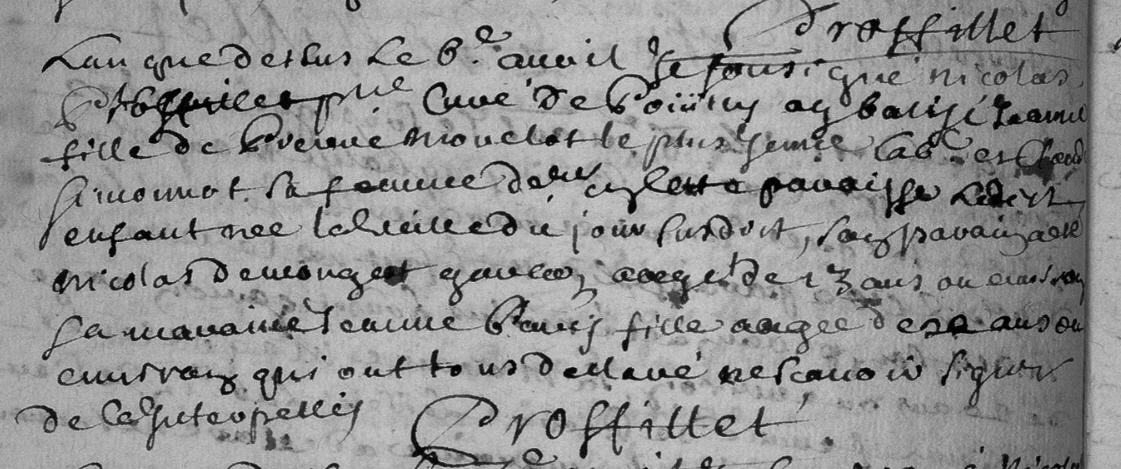 Proffillet
Lan que dessus Le 6.e avril Je soussigné nicolas
Proffillet p̄tre Curé de Poiiny ay batisé Jeanne
fille de Pierre Mouclot le plus Jeune lab. et
Simonnot sa femme de cette paroisse Ledict
enfant nee la vieille du jour susdit, son parain a esté
nicolas demonget garcon aagé de 13 ans ou environ
sa maraine Jeanne fille aagee de ans ou
environ qui ont tous declaré ne scavoir signer
de ce Interpellés
Proffillet